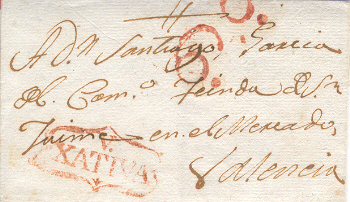 A D.ⁿ Santiago Garcia
del Com.º Tienda d S.ⁿ
Jaime en el Mercado,
Valencia
V.
XATIVA